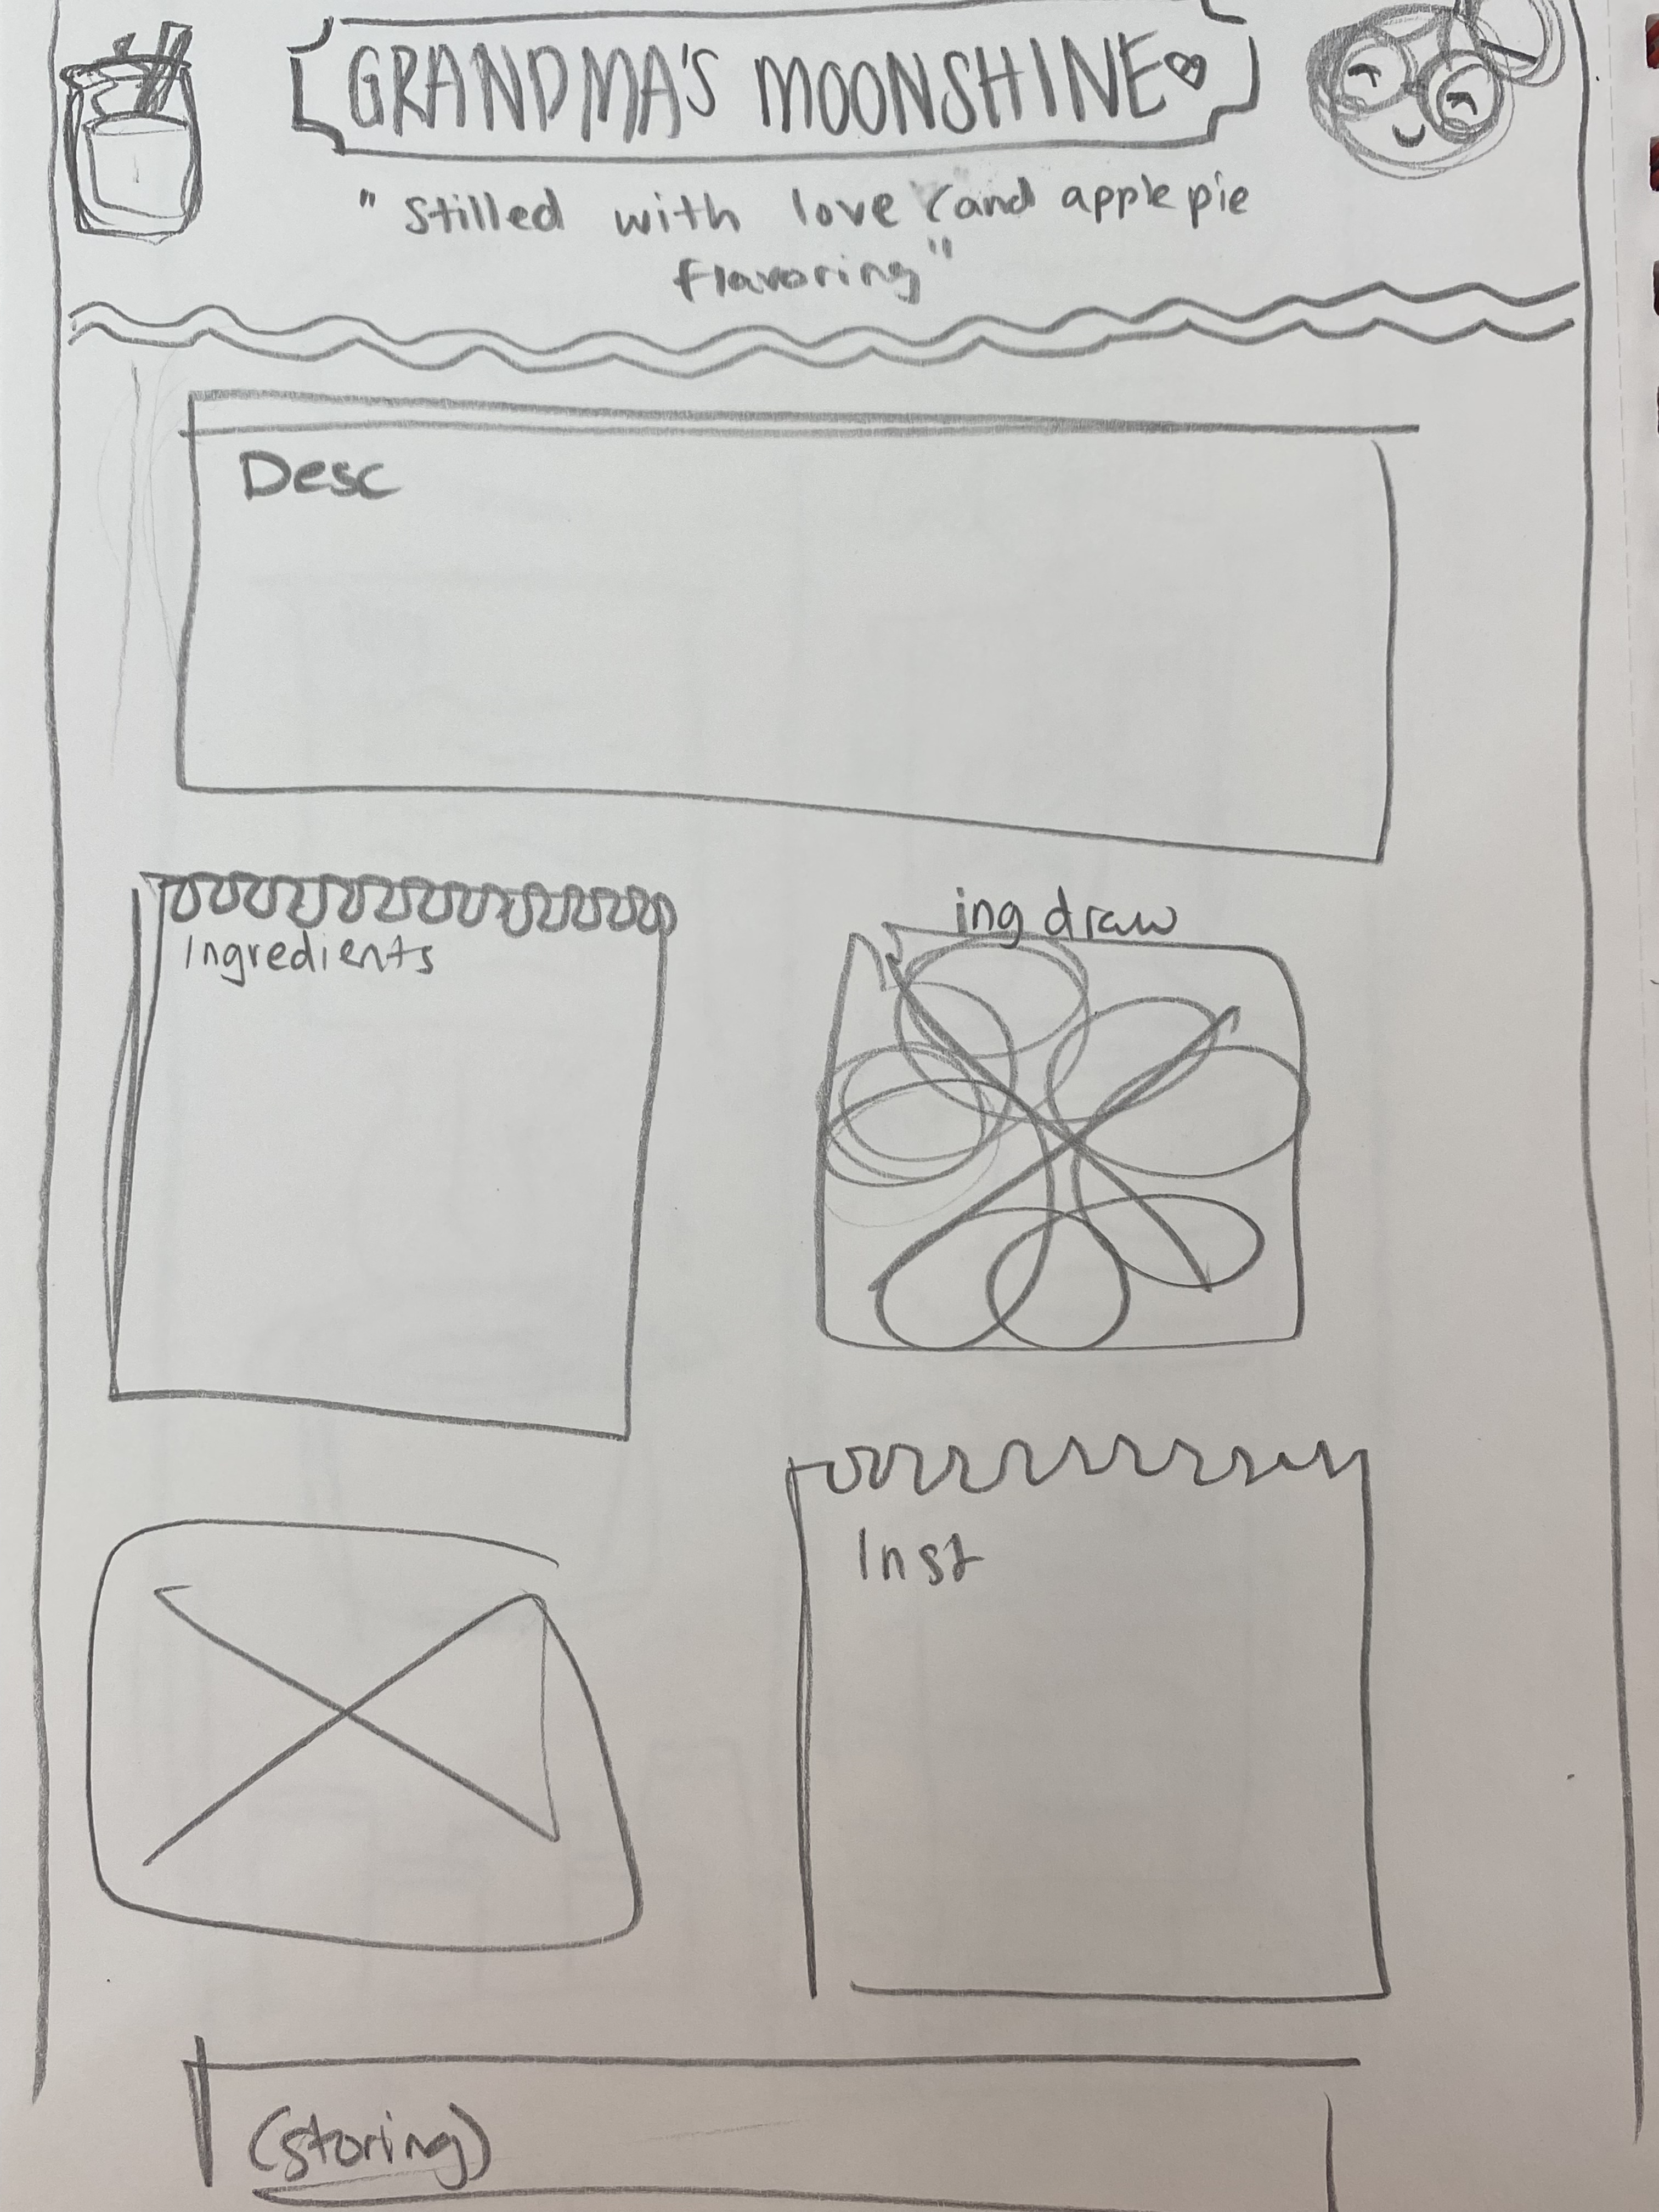 GRANDMA'S MOONSHINE
"Stilled with love (and apple pie
flavoring"
Desc
Ingredients
ing draw
Inst
(storing)